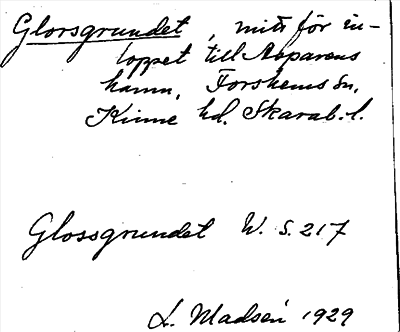 Glorsgrundet, mitt för in-
loppet till Aaparens
hamn, Forshems sn,
Kinne hd. Skarab. l.
Glossgrundet W. S. 217
L. Madsén 1929